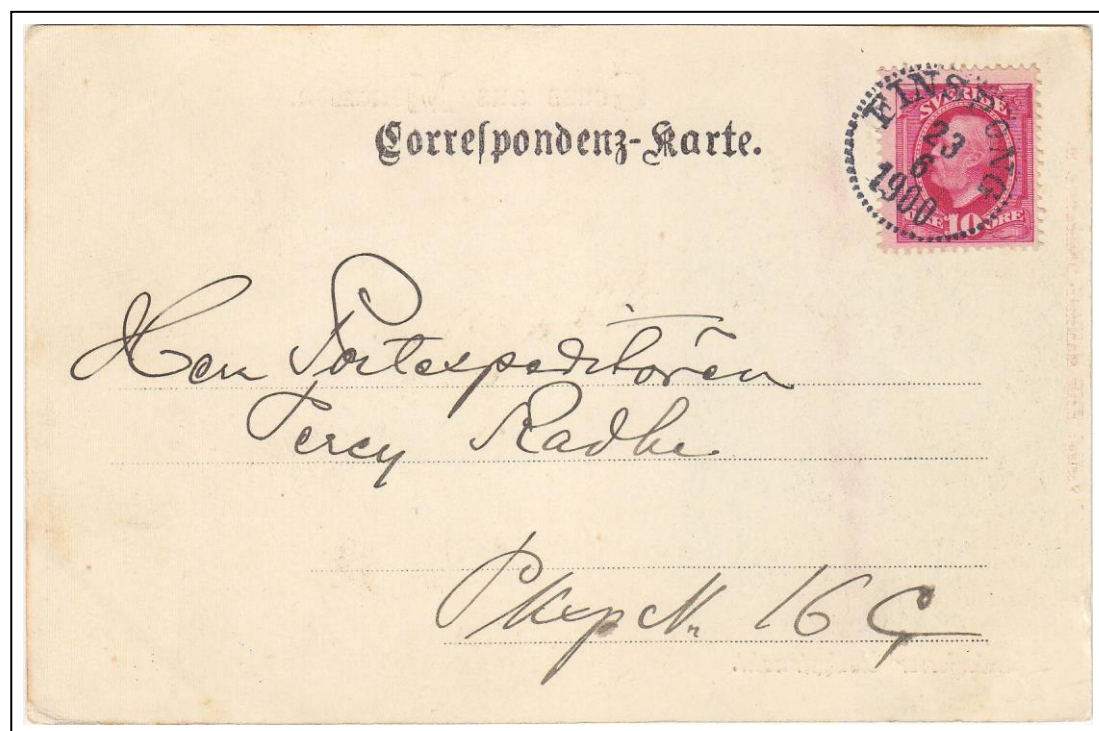 Correspondenz-Karte.
FINSPONG
23
6
1900
SVERIGE
10 ÖRE
Herr Postexpeditören
Percy Radhe
PKxp Nr 16 C